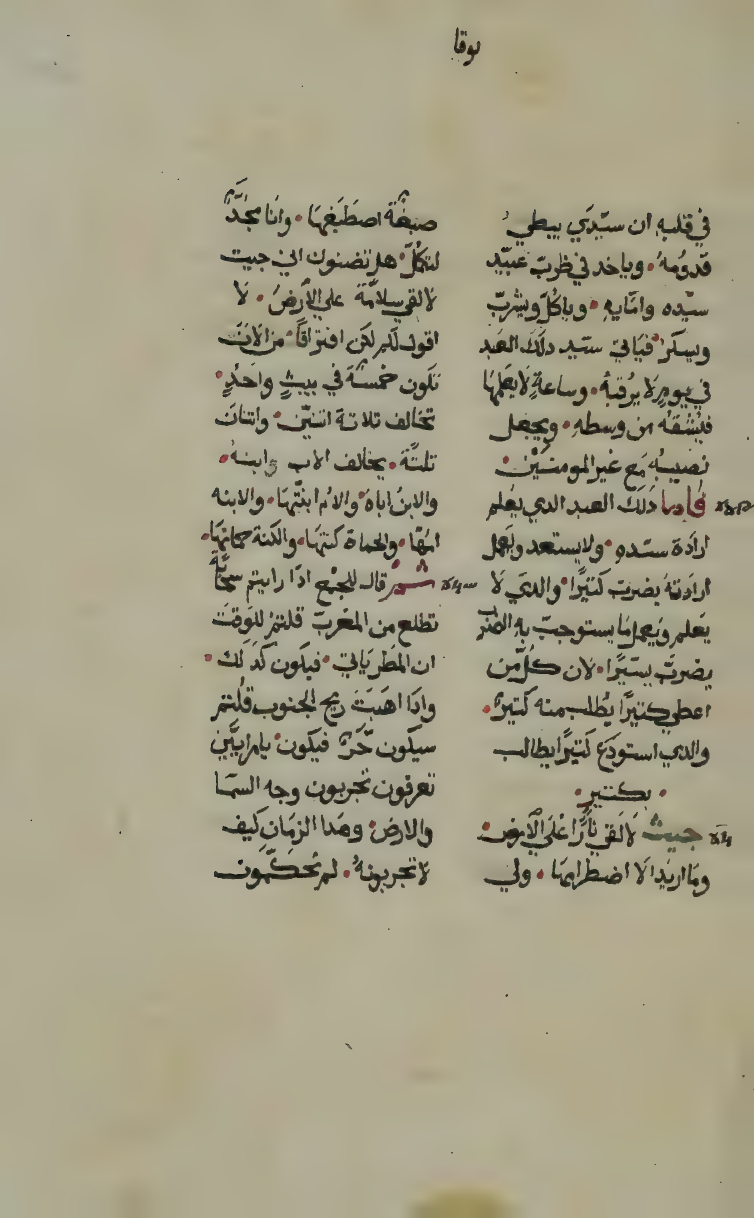 لوقا
في قلبه ان سيّدي يبطي
قدومه. وياخد في ظرب عبيد
سيّده وامايه. وياكل ويشرب
ويسكر. فياتي سيد دلك العبد
في يوم لا يرقبه. وساعة لا يعلمها
فيشقه من وسطه. ويجعل
نصيبه مع غير المومنين.
فاما دلك العبد الدي يعلم
ارادة سيده. ولا يستعد ويعمل
ارادته يضرب كتيرا. والدي لا
يعلم ويعمل ما يستوجب به الضرب
يضرب يسيرا. لان كل من
اعطي كتيرا يُطلب منه كتير.
والدي استودع كتيرا يطالب
. بكتير.
جيت لالقي نارًا علي الارض.
وما اريد الا اضطرامها. ولي
صبغة اصطبغها. وانا مجدّ
لتكمل. هل تضنون اني جيت
لالقي سلامة علي الارض. لا
اقول لكم لكن افتراقا. من الان
تكون خمسة في بيت واحد.
تخالف تلاتة اتنين. واتنان
تلتة. يخالف الاب ابنه.
والابن اباه. والام ابنتها. والابنه
امها. والحماة كنتها. والكنة حماتها.
ثم قال للجمع ادا رايتم سحابة
تطلع من المغرب قلتم للوقت
ان المطر ياتي. فيكون كدلك.
وادا اهبت ريح الجنوب قلتم
سيكون حَرّ فيكون. يا مراييين
تعرفون تجربون وجه السما
والارض. وهدا الزمان كيف
لا تجربونه. لم تحكمون